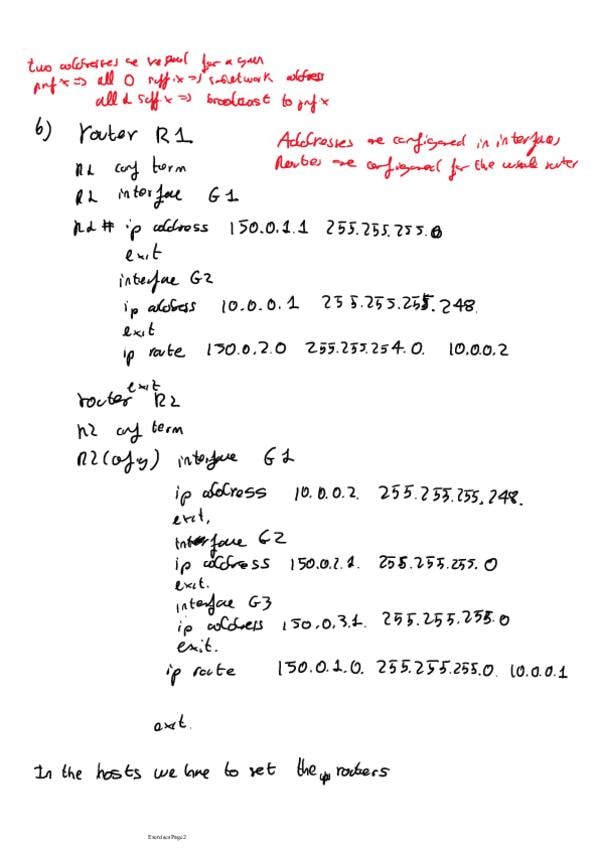 two addresses are for a given
prefix => all 0 suffix => subnetwork address
all 1 suffix => broadcast to prefix
b) router R1
Addresses are configured in interfaces
Routes are configured for the whole router
R1 conf term
R1 interface G1
R1 # ip address 150.0.1.1 255.255.255.0
exit
interface G2
ip address 10.0.0.1 255.255.255.248.
exit
ip route 150.0.2.0 255.255.254.0. 10.0.0.2
exit
router R2
R2 conf term
R2 (config) interface G1
ip address 10.0.0.2. 255.255.255.248.
exit.
interface G2
ip address 150.0.2.1. 255.255.255.0
exit.
interface G3
ip address 150.0.3.1. 255.255.255.0
exit.
ip route 150.0.1.0. 255.255.255.0. 10.0.0.1
exit.
In the hosts we have to set the routers
Exercises Page 2